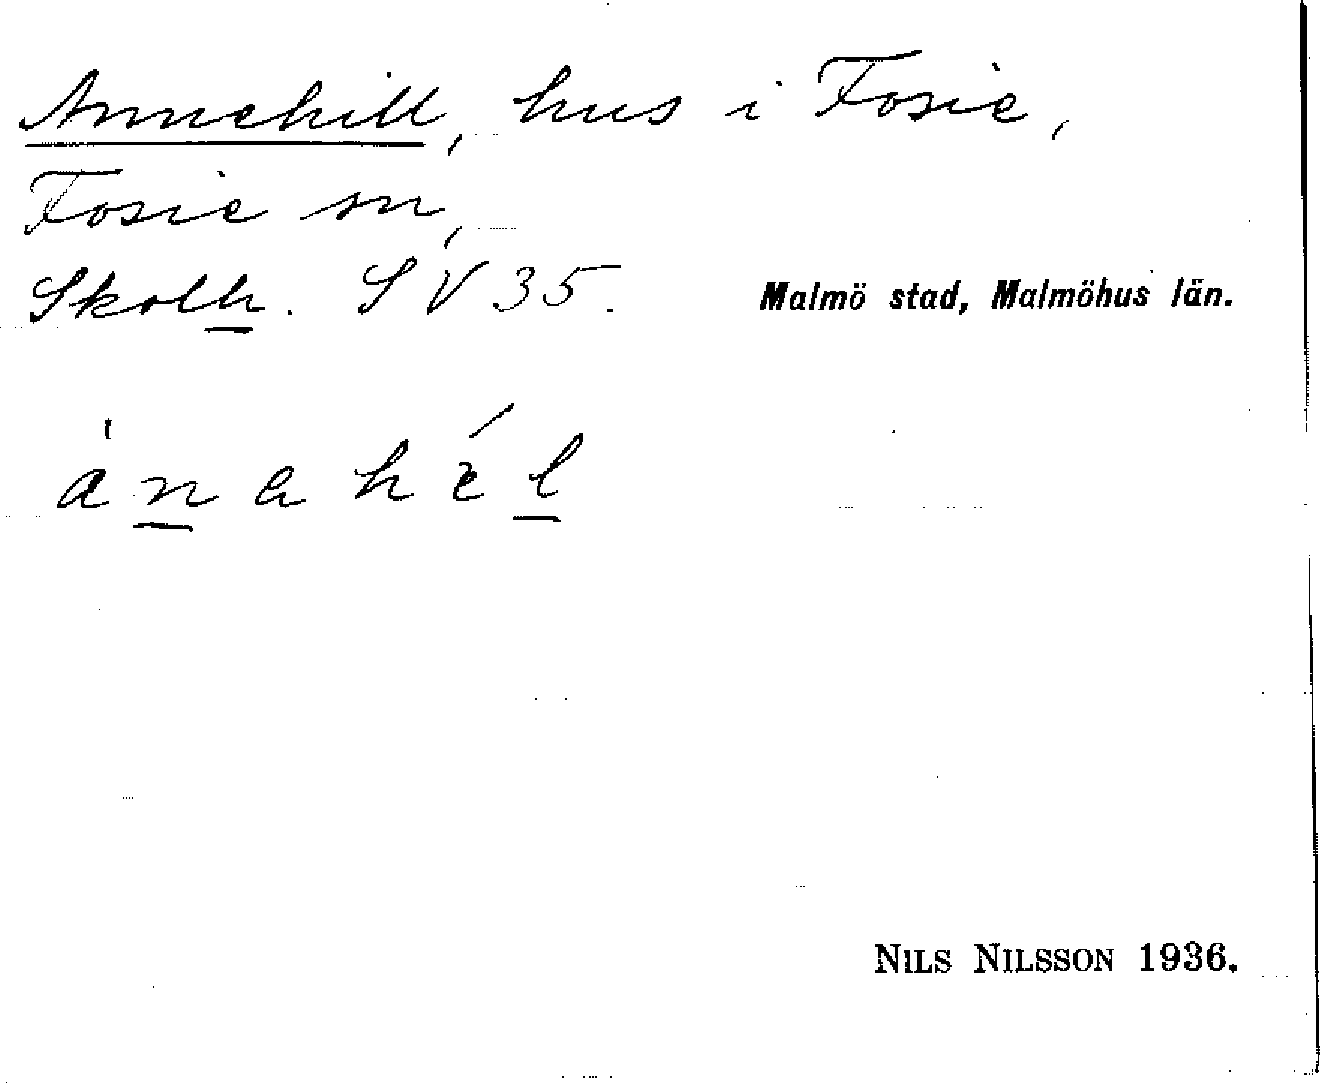 Annehill, hus i Fosie,
Fosie sn,
Skolh. SV 35. Malmö stad, Malmöhus län.
ànahél
NILS NILSSON 1936.